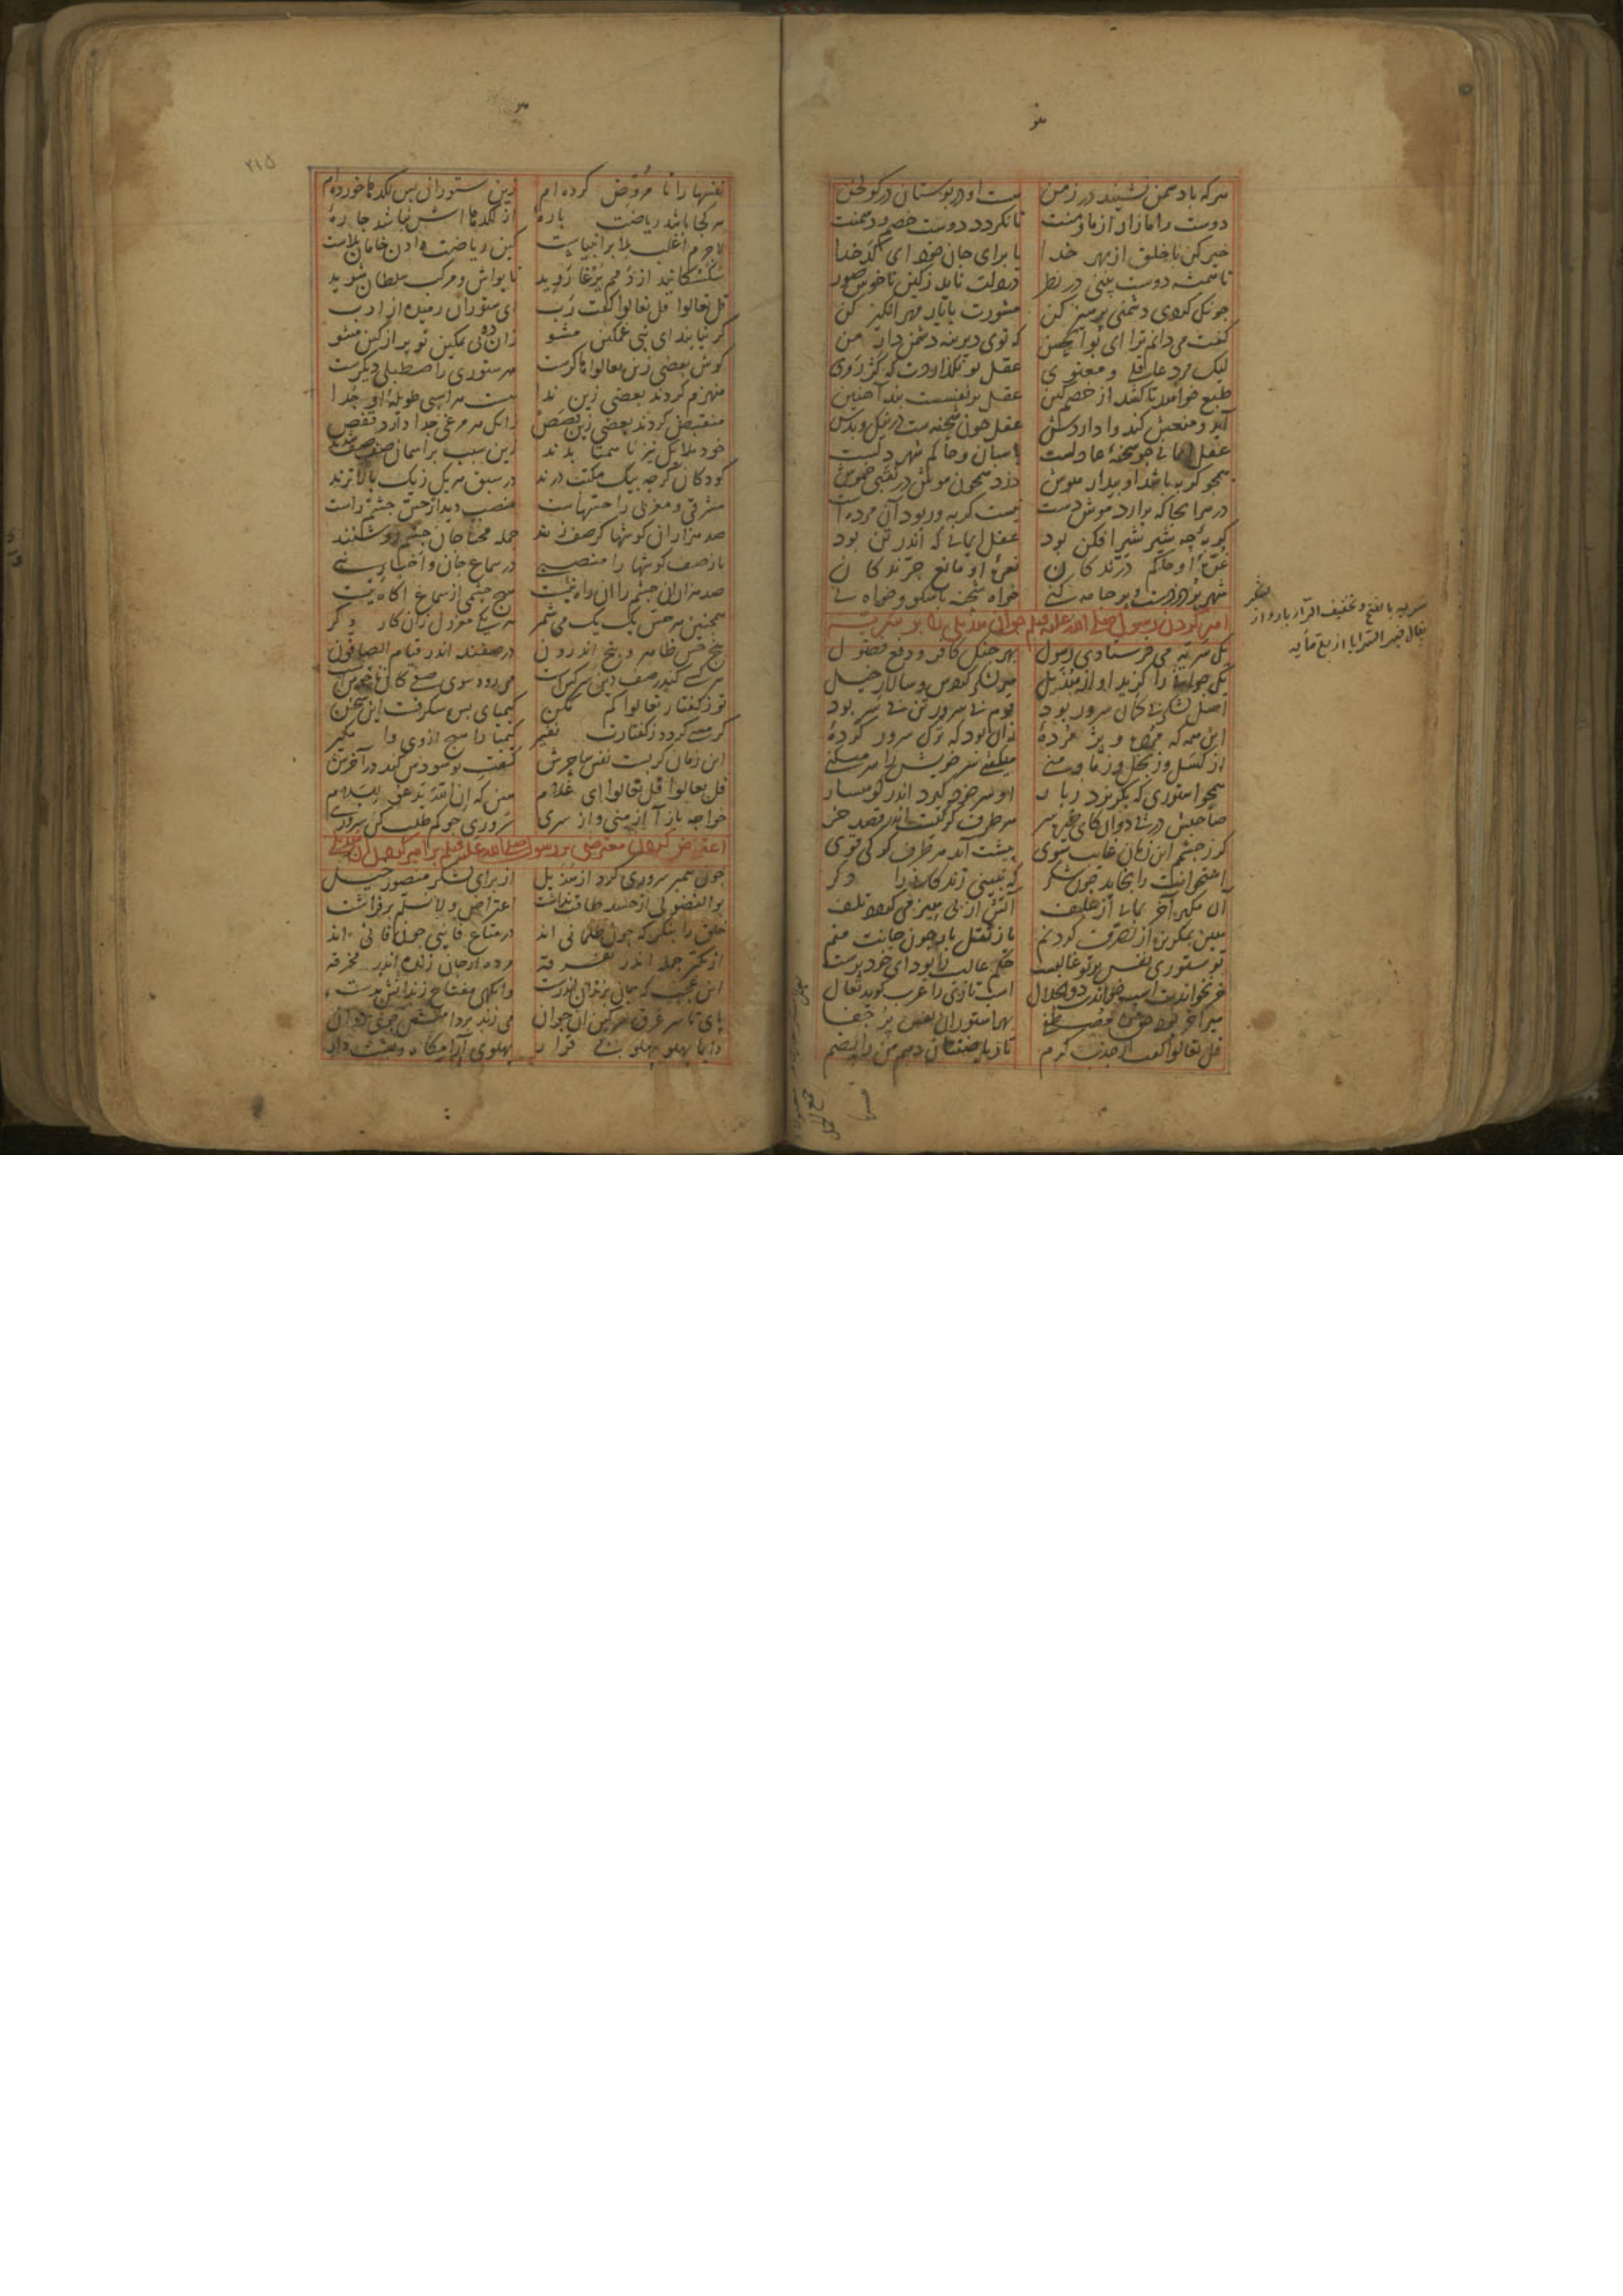 هر که با دشمن نشیند در زمن هست او در بوستان در کولخن
دوست را مازار از ما و منت تا نکردد دوست خصم و دشمنت
خیر کن با خلق از بهر خدا یا برای جان خود ای کدخدا
تا همشه دوست بینی در نظر در دلت ناید ز کین ناخوش صور
جونک کردی دشمنی پرهیز کن مشورت با یار مهر انکیز کن
کفت می دانم ترا ای بو الحسن که توی دیرینه دشمن دار من
لیک مرد عاقلی و معنوی عقل تو نکذاردت که کژ روی
طبع خواهد تا کشد از خصم کین عقل بر نفسست بند آهنین
آید و منعش کند وا داردش عقل جون شحنه ست در نیک و بدش
عقل ایمانی جو شحنه عادلست باسبان و حاکم شهر دلست
همجو کربه باشد او بیدار هوش دزد همجون موش در نقبی خموش
در هر انجا که برارد موش دست نیست کربه ور بود آن مرده است
کربه جه شیر شیر افکن بود عقل ایمانی که اندر تن بود
غره او حاکم درندکان نعره او مانع جرندکان
شهر پر دزدست و پر جامه کنی خواه شحنه باش کو و خواه نی
امیر کردن رسول صلی الله علیه و سلم جوان هذیلی را بر سریه
یک سریه می فرستادی رسول بهر جنک کافر و دفع فضول
یک جوانی را کزید او از هذیل میر لشکر کردش و سالار خیل
اصل لشکر بی کمان سرور بود قوم بی سرور تن بی سر بود
این همه که مرده و پژمرده زان بود که ترک سرور کرده
از کسل وز بخل وز ما و منی میکشی سر خویش را سر میکنی
همجو استوری که بکریزد ز بار او سر خود کیرد اندر کوهسار
صاحبش در پی دوان کای خیره سر هر طرف کرکیست اندر قصد خر
کر ز جشمم این زمان غایب شوی پیشت آید هر طرف کرک قوی
استخوانت را بخاید جون شکر که نبینی زندکانی را دکر
آن مکیر آخر بمانی از علف آتش از بی هیزمی کردد تلف
هین بمکریز از تصرف کردنم باز ثقل بار جون جانت منم
تو ستوری نفس بر تو غالبست حکم غالب را بود ای خود پرست
خر نخواندت اسب خواندت ذو الجلال اسب تازی را عرب کوید تعال
میر آخر بود حق را مصطفی بهر استوران نفس پر جفا
قل تعالوا کفت از جذب کرم تا ریاضتتان دهم من رایضم
نفسها را تا مروض کرده ام زین ستوران بس لکدها خورده ام
هر کجا باشد ریاضت باره از لکدهااش نباشد جاره
لاجرم اغلب بلا بر انبیاست کین ریاضت دادن خامان بلاست
سکسکانید از دمم یرغا روید تا یواش و مرکب سلطان شوید
قل تعالوا قل تعالوا کفت رب ای ستوران رمیده از ادب
کر نیایند ای نبی غمکین مشو زان دو بی تمکین تو پر از کین مشو
کوش بعضی زین تعالواها کرست هر ستوری را صطبلی دیکرست
منهزم کردند بعضی زین ندا هست هر اسبی طویله او جدا
منقبض کردند بعضی زین قصص زانک هر مرغی جدا دارد قفص
خود ملایک نیز ناهمتا بدند زین سبب بر آسمان صف صف شدند
کودکان کرجه بیک مکتب درند در سبق هر یک ز یک بالاترند
مشرقی و مغربی را حسهاست منصب دیدار حس جشم راست
صد هزاران کوشها کر صف زنند جمله محتاجان جشم روشنند
باز صف کوشها را منصبی در سماع جان و اخبار نبی
صد هزاران جشم را آن راه نیست هیج جشمی از سماع آکاه نیست
همجنین هر حس یک یک می شمر هر یکی معزول زان کار دکر
پنج حس ظاهر و پنج اندرون در صفند اندر قیام الصافون
هر کسی کو از صف دین سرکش است می رود سوی صفی کان ناخوش است
تو ز کفتار تعالوا کم مکن کیمیای بس شکرفست این سخن
کر مسی کردد ز کفتارت نفیر کیمیا را هیج از وی وا مکیر
این زمان کر بست نفس ساحرش کفت تو سودش کند در آخرش
قل تعالوا قل تعالوا ای غلام هین که ان الله یدعو للسلام
خواجه باز آ از منی و از سری سروری جو کم طلب کن سروری
اعتراض کردن معترضی بر رسول صلی الله علیه و سلم بر امیر کردن آن هذیلی
جون پیمبر سروری کرد از هذیل از برای لشکر منصور خیل
بو الفضولی از حسد طاقت نداشت اعتراض و لا نسلم بر فراشت
خلق را بنکر که جون ظلمانی اند در متاع فانیی جون فانی اند
از تکبر جمله اندر تفرقه مرده از جان زنده اندر مخرقه
این عجب که جان بزندان اندرست وانکهی مفتاح زندانش بدست
پای تا سر غرق سرکین آن جوان می زند بر دامنش جوی روان
دایما پهلو بپهلو بی قرار پهلوی آرامکاه و پشت دار
سریه بالفتح و تخفیف
۲۱۵